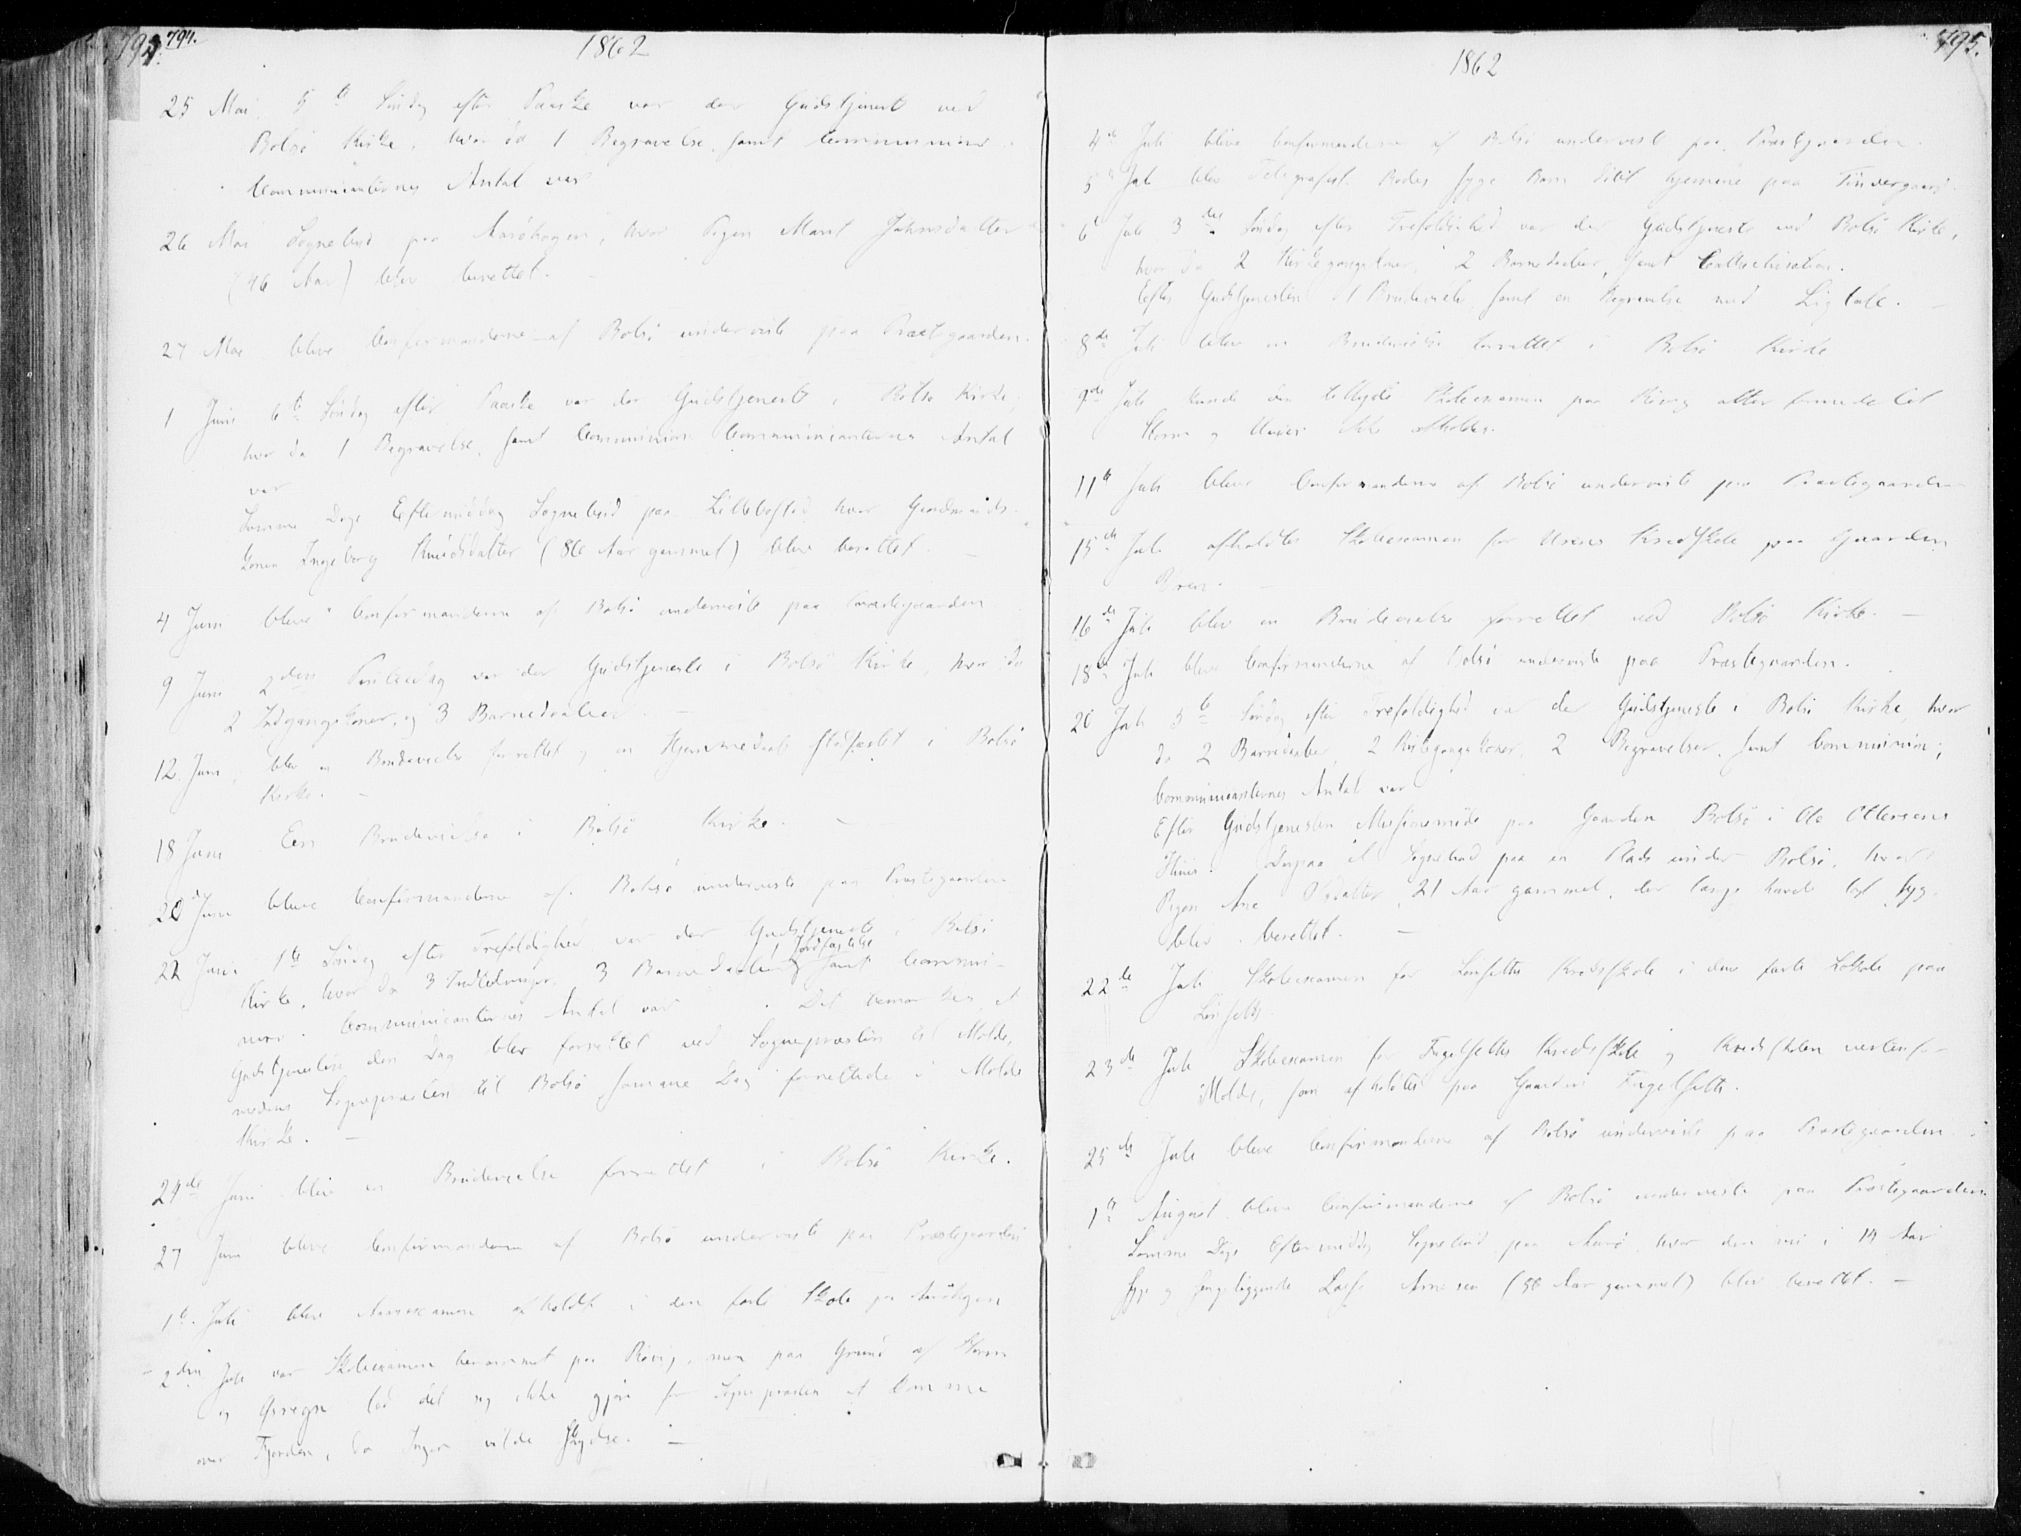 794.
1862
25 Mai 5te Søndag efter Paaske var der Gudstjeneste ved
Bolsø Kirke, hvor da 1 Begravelse samt Communion.
Communicanternes Antal var
26 Mai Sognebud paa Aarøhagen, hvor Pigen Marit Johnsdatter
(46 Aar) blev berettet. —
27 Mai bleve Confirmanderne af Bolsø underviste paa Præstegaarden.
1 Juni 6te Søndag efter Paaske var der Gudstjeneste i Bolsø Kirke,
hvor da 1 Begravelse, samt Communion. Communicanternes Antal
var
Samme Dags Eftermiddag Sognebud paa Lillebostad hvor Gaardmands-
konen Ingeborg Knudsdatter (86 Aar gammel) blev berettet. —
4 Juni bleve Confirmanderne af Bolsø underviste paa Præstegaarden
9 Juni 2den Pintsedag var der Gudstjeneste i Bolsø Kirke, hvor da
2 Indgangskoner, og 3 Barnedaaber. —
12. Juni, blev en Brudevielse forrettet og en Hjemmedaab stadfæstet i Bolsø
Kirke. —
18 Juni Een Brudevielse i Bolsø Kirke. —
20 Juni bleve Confirmanderne af Bolsø underviste paa Præstegaarden
22 Juni 1te Søndag efter Trefoldighed var der Gudstjeneste i Bolsø
Kirke, hvor da 3 Indledninger, 3 Barnedaaber, 1 Jordfæstelse samt Commu-
nion. Communicanternes Antal var . Det bemærkes, at
Gudstjenesten den Dag blev forrettet ved Sognepræsten til Molde,
medens Sognepræsten til Bolsø samme Dag forrettede i Molde
Kirke. —
24de Juni blev en Brudevielse forrettet i Bolsø Kirke.
27 Juni bleve Confirmanderne af Bolsø underviste paa Præstegaarden
1te Juli blev Skoleexamen afholdt i den faste Skole paa Aarøhagen
2den Juli var Skoleexamen berammet paa Røvig, men paa Grund af Storm
og Øsregn lod det sig ikke gjøre for Sognepræsten at komme
over Fjorden, da Ingen vilde skydse. —
795.
1862
4de Juli bleve Confirmanderne af Bolsø underviste paa Præstegaarden.
5te Juli blev Telegrafist Bodes syge Barn døbt hjemme paa
6te Juli 3die Søndag efter Trefoldighed var der Gudstjeneste ved Bolsø Kirke,
hvor da 2 Kirkegangskoner, 2 Barnedaaber, samt Catechisation.
Efter Gudstjenesten 1 Brudevielse, samt en Begravelse med Ligtale. —
8de Juli blev en Brudevielse forrettet i Bolsø Kirke
9de Juli kunde den tillyste Skoleexamen paa Røvig atter formedelst
Storm og Uveir ikke afholdes.
11te Juli bleve Confirmanderne af Bolsø underviste paa Præstegaarden
15de Juli afholdtes Skoleexamen for Kredsskole paa Gaarden
. —
16de Juli blev en Brudevielse forrettet ved Bolsø Kirke. —
18de Juli bleve Confirmanderne af Bolsø underviste paa Præstegaarden.
20 Juli 5te Søndag efter Trefoldighed var der Gudstjeneste i Bolsø Kirke, hvor
da 2 Barnedaaber, 2 Kirkegangskoner, 2 Begravelser, samt Communion;
Communicanternes Antal var
Efter Gudstjenesten Missionsmøde paa Gaarden Bolsø i Ole Ottersens
Huus. Derpaa et Sognebud paa en Plads under Bolsø, hvor
Pigen Ane 21 Aar gammel, der længe havde været syg
blev berettet. —
22de Juli Skoleexamen for Lønsets Kredsskole i den faste Lokale paa
Lønset.
23de Juli Skoleexamen for Fugelsets Kredsskole og Kredsskolen vestenfor
Molde, som afholdtes paa Gaarden Fugelset.
25de Juli bleve Confirmanderne af Bolsø underviste paa Præstegaarden.
1te August bleve Confirmanderne af Bolsø underviste paa Præstegaarden
Samme Dags Eftermiddag Sognebud paa Aarø, hvor den nu i 14 Aar
syge og sengeliggende Arnesen (50 Aar gammel) blev berettet. —